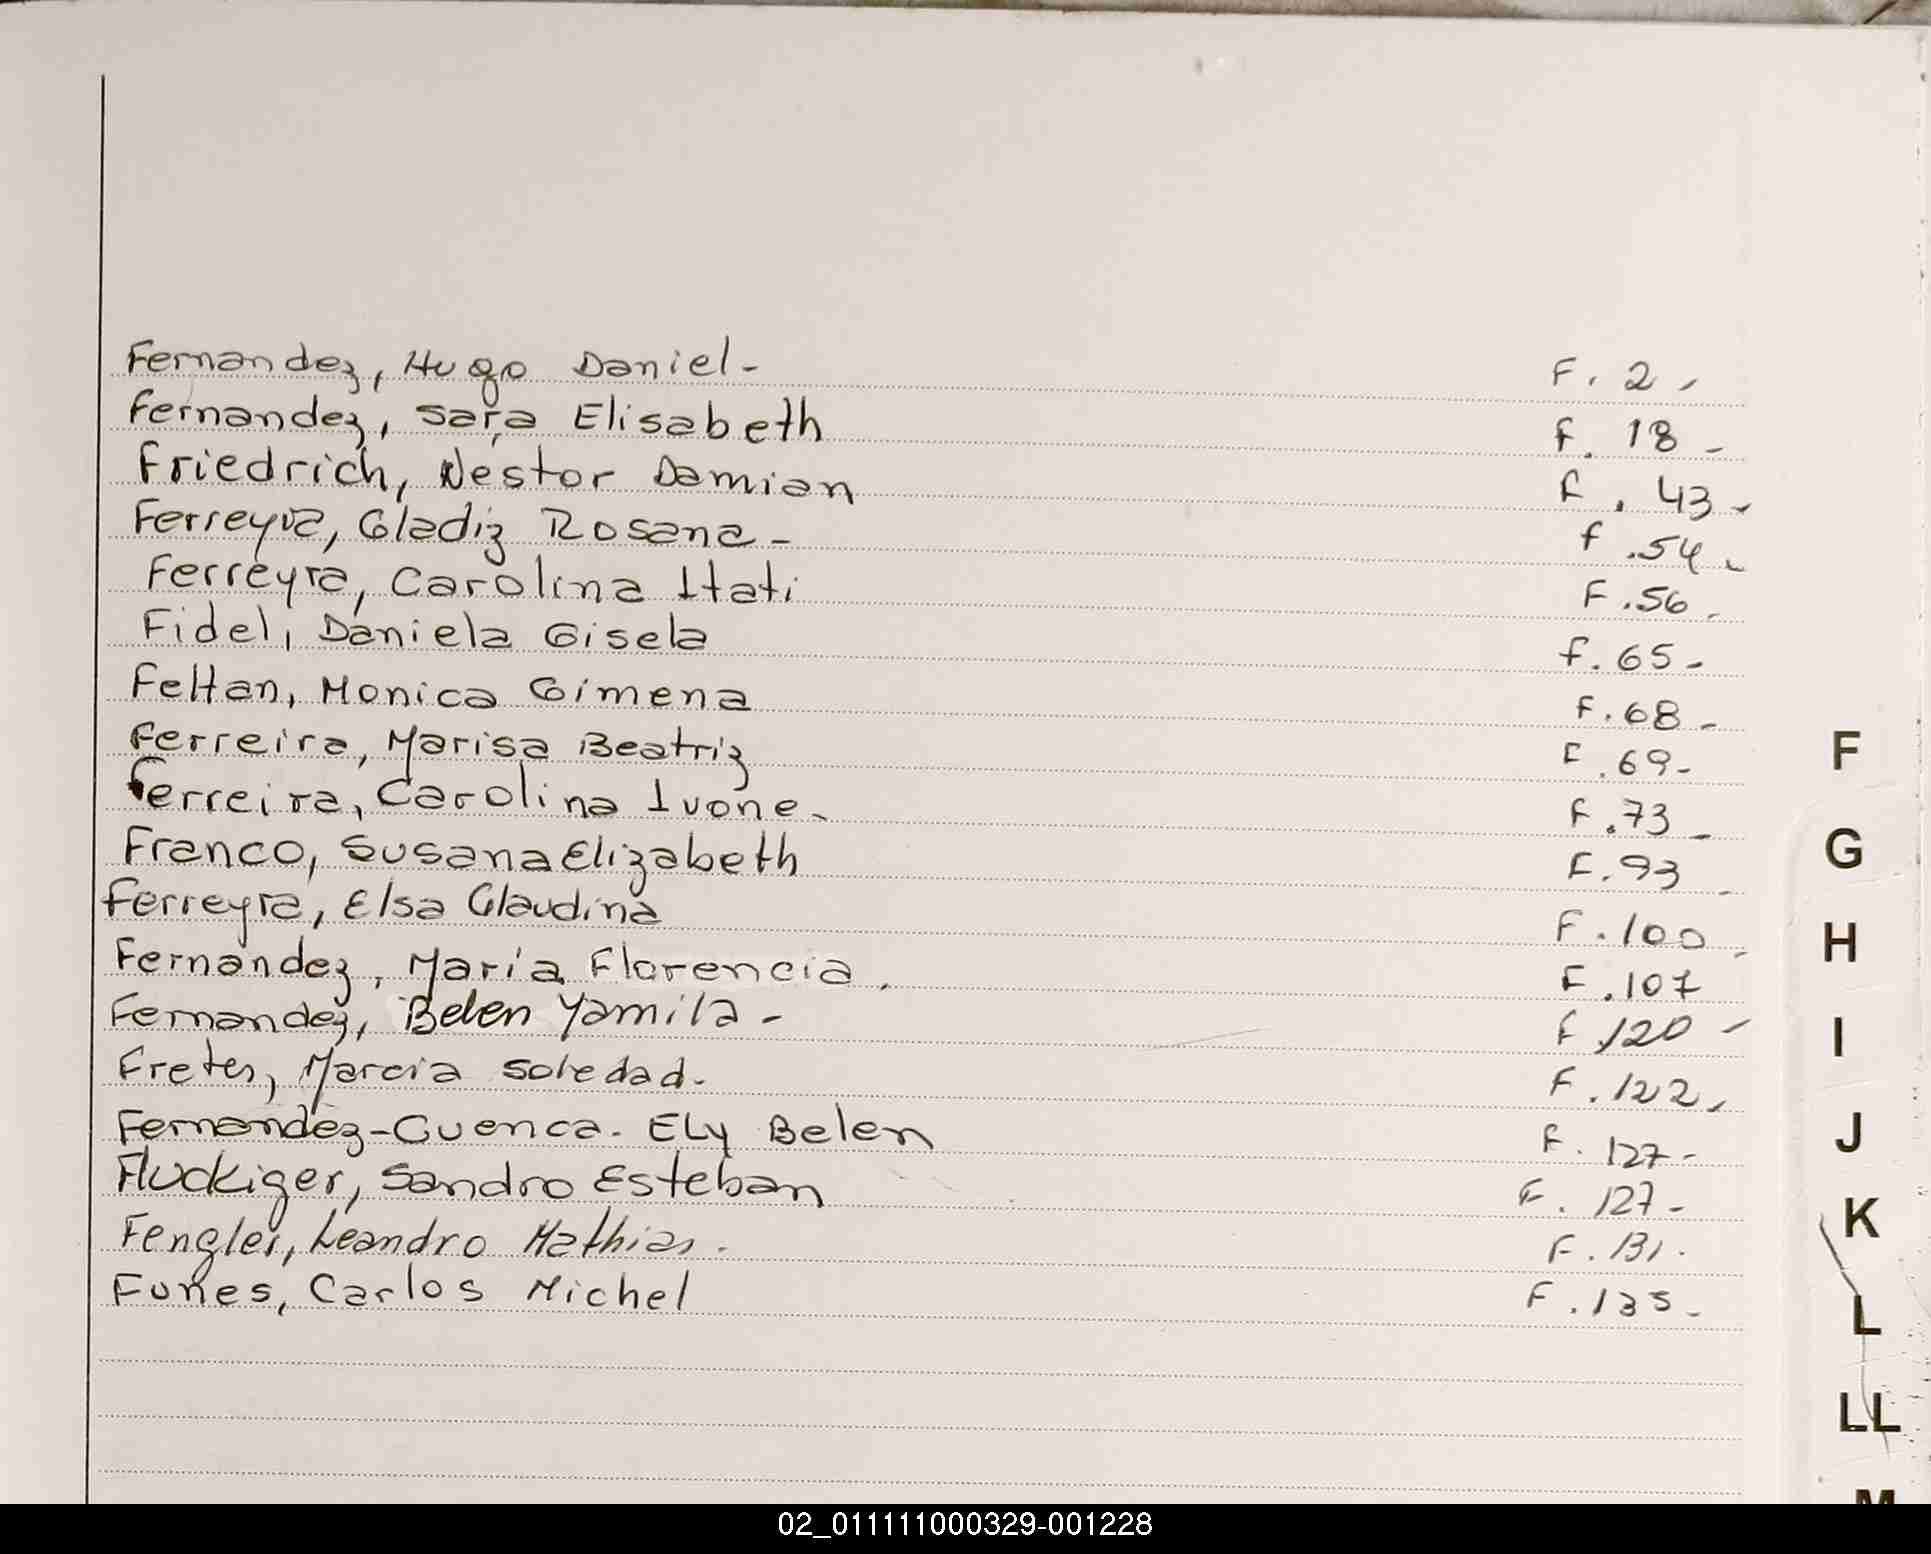 Fernandez, Hugo Daniel- F. 2-
Fernandez, Sara Elisabeth F. 18-
Friedrich, Nestor Damian F. 43-
Ferreyra, Gladiz Rosana- F.54-
Ferreyra, Carolina Itati F.56-
Fidel, Daniela Gisela F.65-
Feltan, Monica Gimena F.68-
Ferreira, Marisa Beatriz F.69-
Ferreira, Carolina Ivone- F.73-
Franco, Susana Elizabeth F.93-
Ferreyra, Elsa Claudina F.100-
Fernandez, María Florencia. F.107
Fernandez, Belen Yamila- F.120-
Fretes, Marcia Soledad. F.122-
Fernandez-Cuenca. Ely Belen F.127-
Fluckiger, Sandro Esteban F.127-
Fengler, Leandro Mathias. F.131.
Funes, Carlos Michel F.135-
F
G
H
I
J
K
L
LL
M
02_011111000329-001228